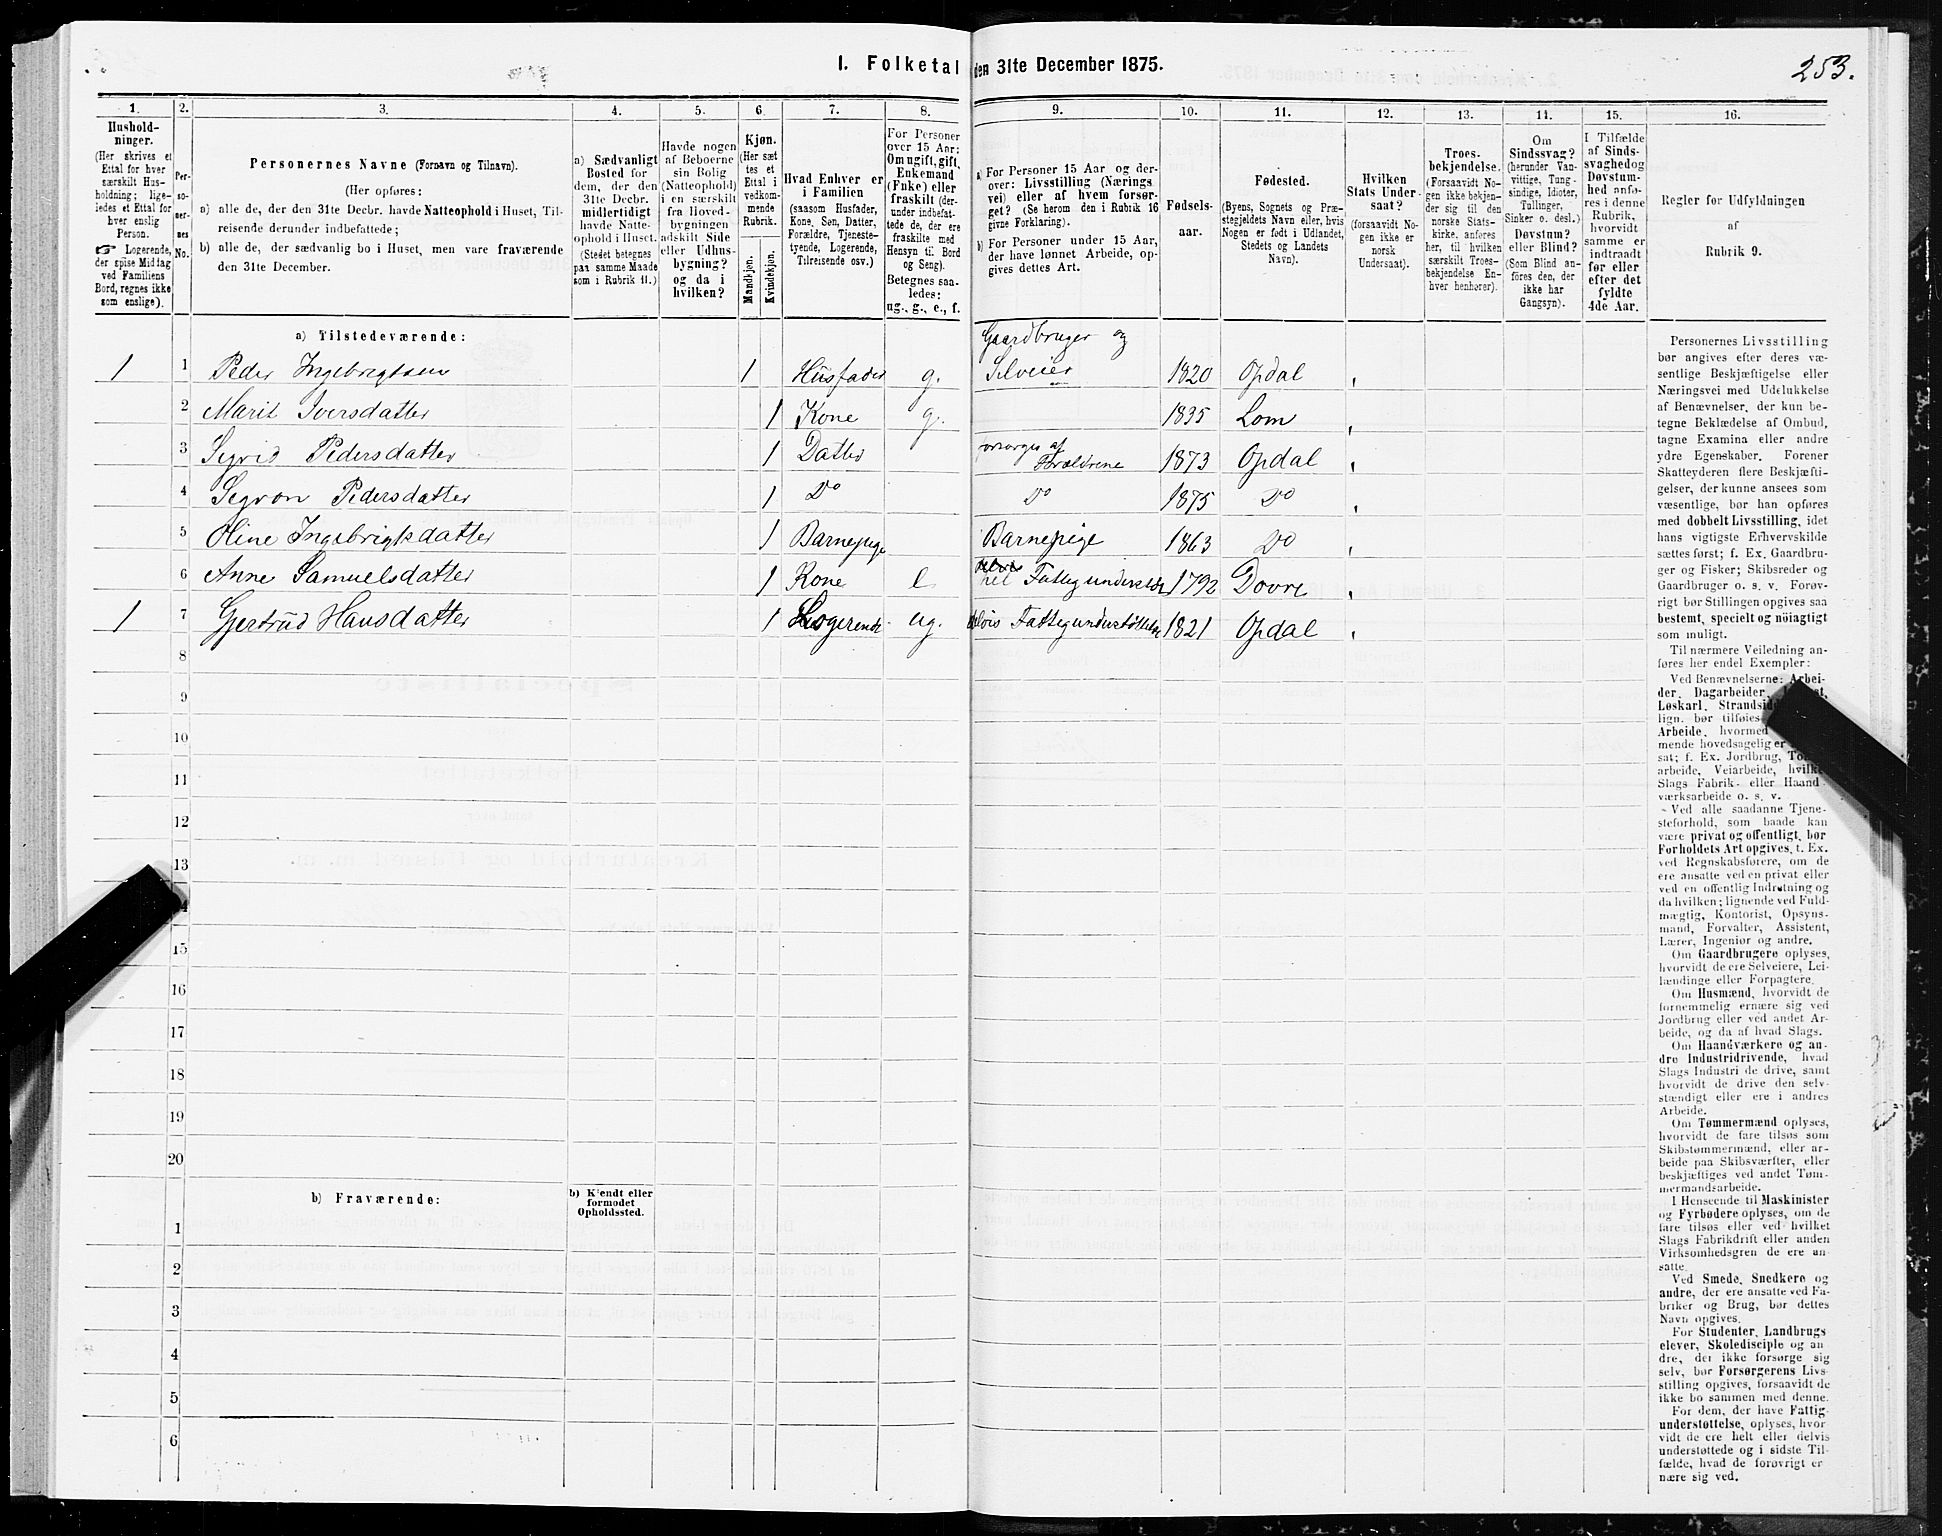 I. Folketal den 31te December 1875.
253.
1. 2. 3. 4. 5. 6. 7. 8. 9. 10. 11. 12. 13. 14. 15. 16.
Hushold-
ninger.
(Her skrives et
Ettal for hver
særskilt Hus-
holdning; lige-
ledes et Ettal for
hver enslig
Person.
☞ Logerende,
der spise Middag
ved Familiens
Bord, regnes ikke
som enslige).
Per-
so-
ner-
nes
No.
Personernes Navne (Fornavn og Tilnavn).
(Her opføres:
a) alle de, der den 31te Decbr. havde Natteophold i Huset, Til-
reisende derunder indbefattede;
b) alle de, der sædvanlig bo i Huset, men vare fraværende
den 31te December.
a) Sædvanligt
Bosted for
dem, der den
31te Decbr.
midlertidigt
havde Natte-
ophold i Huset.
(Stedet betegnes
paa samme Maade
som i Rubrik 11.)
Havde nogen
af Beboerne
sin Bolig
(Natteophold)
i en særskilt
fra Hoved-
bygningen
adskilt Side
eller Udhus-
bygning?
og da i
hvilken?
Kjøn.
(Her sæt
tes et
Ettal i
vedkom-
mende
Rubrik.
Mandkjøn.
Kvindekjøn.
Hvad Enhver er
i Familien
(saasom Husfader,
Kone, Søn, Datter,
Forældre, Tjeneste-
tyende, Logerende,
Tilreisende osv.)
For Personer
over 15 Aar:
Om ugift, gift,
Enkemand
(Enke) eller
fraskilt (der-
under indbefat-
tede de, der ere
fraskilte med
Hensyn til Bord
og Seng).
Betegnes saa-
ledes:
ug., g., e., f.
a) For Personer 15 Aar og der-
over: Livsstilling (Nærings
vei) eller af hvem forsør-
get? (Se herom den i Rubrik 16
givne Forklaring).
b) For Personer under 15 Aar,
der have lønnet Arbeide, op-
gives dettes Art.
Fødsels-
aar.
Fødested.
(Byens, Sognets og Præ-
stegjeldets Navn eller, hvis
Nogen er født i Udlandet,
Stedets og Landets
Navn).
Hvilken
Stats Under-
saat?
(forsaavidt No-
gen ikke er
norsk
Undersaat).
Troes-
bekjendelse.
(Forsaavidt No-
gen ikke bekjen-
der sig til den
norske Stats-
kirke, anføres
her, til hvilken
særskilt Troes-
bekjendelse En-
hver henhører).
Om
Sindssvag?
(herunder Van-
vittige, Tung-
sindige, Idioter,
Tullinger,
Sinker o. desl.)
Døvstum?
eller Blind?
(Som Blind an-
føres den, der
ikke har
Gangsyn).
I Tilfælde
af Sinds-
svaghed og
Døvstum-
hed anfø-
res i denne
Rubrik,
hvorvidt
samme er
indtraadt
før eller
efter det
fyldte
4de Aar.
Regler for Udfyldningen
af
Rubrik 9.
a) Tilstedeværende:
1 1 Peder Ingebrigtsen 1 Husfader g. Gaardbruger og Selveier 1820 Opdal
2 Marit Iversdatter 1 Kone g. 1835 Lom
3 Sigrid Pedersdatter 1 Datter forsørges af Forældrene 1873 Opdal
4 Segron Pedersdatter 1 Do Do 1875 Do
5 Oline Ingebrigtsdatter 1 Barnepige Barnepige 1863 Do
6 Anne Samuelsdatter 1 Kone e hel Fattigunderstøt 1792 Dovre
1 7 Gjertrud Hansdatter 1 Logerende ug. delvis Fattigunderstøttelse 1821 Opdal
8
9
10
11
12
13
15
16
17
18
19
20
b) Fraværende:
b) Kjendt eller
formodet
Opholdssted.
1
2
3
4
5
6
Personernes Livsstilling
bør angives efter deres væ-
sentlige Beskjæftigelse eller
Næringsvei med Udelukkelse
af Benævnelser, der kun be-
tegne Beklædelse af Ombud,
tagne Examina eller andre
ydre Egenskaber. Forener
Skatteyderen flere Beskjæfti-
gelser, der kunne ansees som
væsentlige, bør han opføres
med dobbelt Livsstilling, idet
hans vigtigste Erhvervskilde
sættes først; f. Ex. Gaardbru-
ger og Fisker; Skibsreder og
Gaardbruger o. s. v. Forøv-
rigt bør Stillingen opgives saa
bestemt, specielt og nöiagtigt
som muligt.
Til nærmere Veiledning an-
føres her endel Exempler:
Ved Benævnelserne: Arbei-
der, Dagarbeider,
Løskarl, Strandsid
lign. bør tilføies
Arbeide, hvormed
mende hovedsagelig er
sat; f. Ex. Jordbrug, To
arbeide, Veiarbeide, hvilke
Slags Fabrik- eller Haand
værksarbeide o. s. v.
Ved alle saadanne Tjene-
steforhold, som baade kan
være privat og offentligt, bør
Forholdets Art opgives, t. Ex.
ved Regnskabsførere, om de
ere ansatte ved en privat eller
ved en offentlig Indretning og
da hvilken; lignende ved Fuld-
mægtig, Kontorist, Opsyns-
mand, Forvalter, Assistent,
Lærer, Ingeniør og andre.
Om Gaardbrugere oplyses,
hvorvidt de ere Selveiere, Lei-
lændinge eller Forpagtere.
Om Husmænd, hvorvidt de
fornemmelig ernære sig ved
Jordbrug eller ved andet Ar-
beide, og da af hvad Slags.
Om Haandværkere og an-
dre Industridrivende, hvad
Slags Industri de drive, samt
hvorvidt de drive den selv-
stændigt eller ere i andres
Arbeide.
Om Tømmermænd oplyses,
hvorvidt de fare tilsøs som
Skibstømmermænd, eller ar-
beide paa Skibsværfter, eller
beskjæftiges ved andet Tøm-
mermandsarbeide.
I Henseende til Maskinister
og Fyrbødere oplyses, om de
fare tilsøs eller ved hvilket
Slags Fabrikdrift eller anden
Virksomhedsgren de ere an-
satte.
Ved Smede, Snedkere og
andre, der ere ansatte ved Fa-
briker og Brug, bør dettes
Navn opgives.
For Studenter, Landbrugs
elever, Skoledisciple og an
dre, der ikke forsørge sig
selv, bør Forsørgerens Livs-
stilling opgives, forsaavidt de
ikke bo sammen med denne.
For dem, der have Fattig-
understøttelse, oplyses, hvor
vidt de ere helt eller delvis
understøttede og i sidste Til-
fælde, hvad de forøvrigt er
nære sig ved.